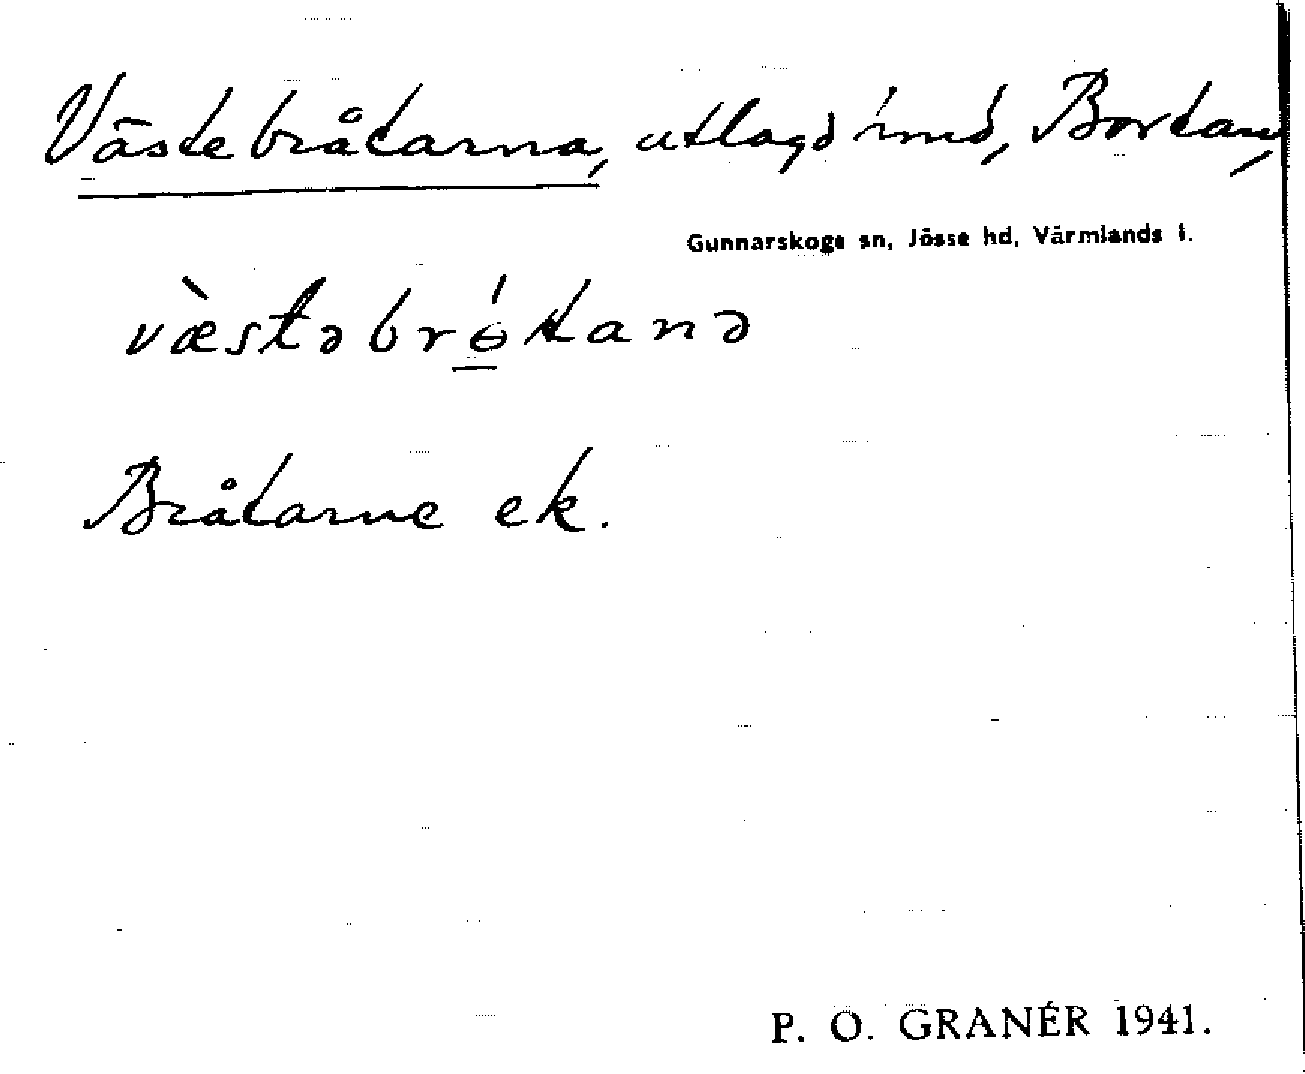 Västebråtarna, utlagd inmd, Bortan,
Gunnarskogs sn, Jösse hd, Värmlands l.
væ̀stəbrɵ́tanə
Bråtarne ek.
P. O. GRANÉR 1941.